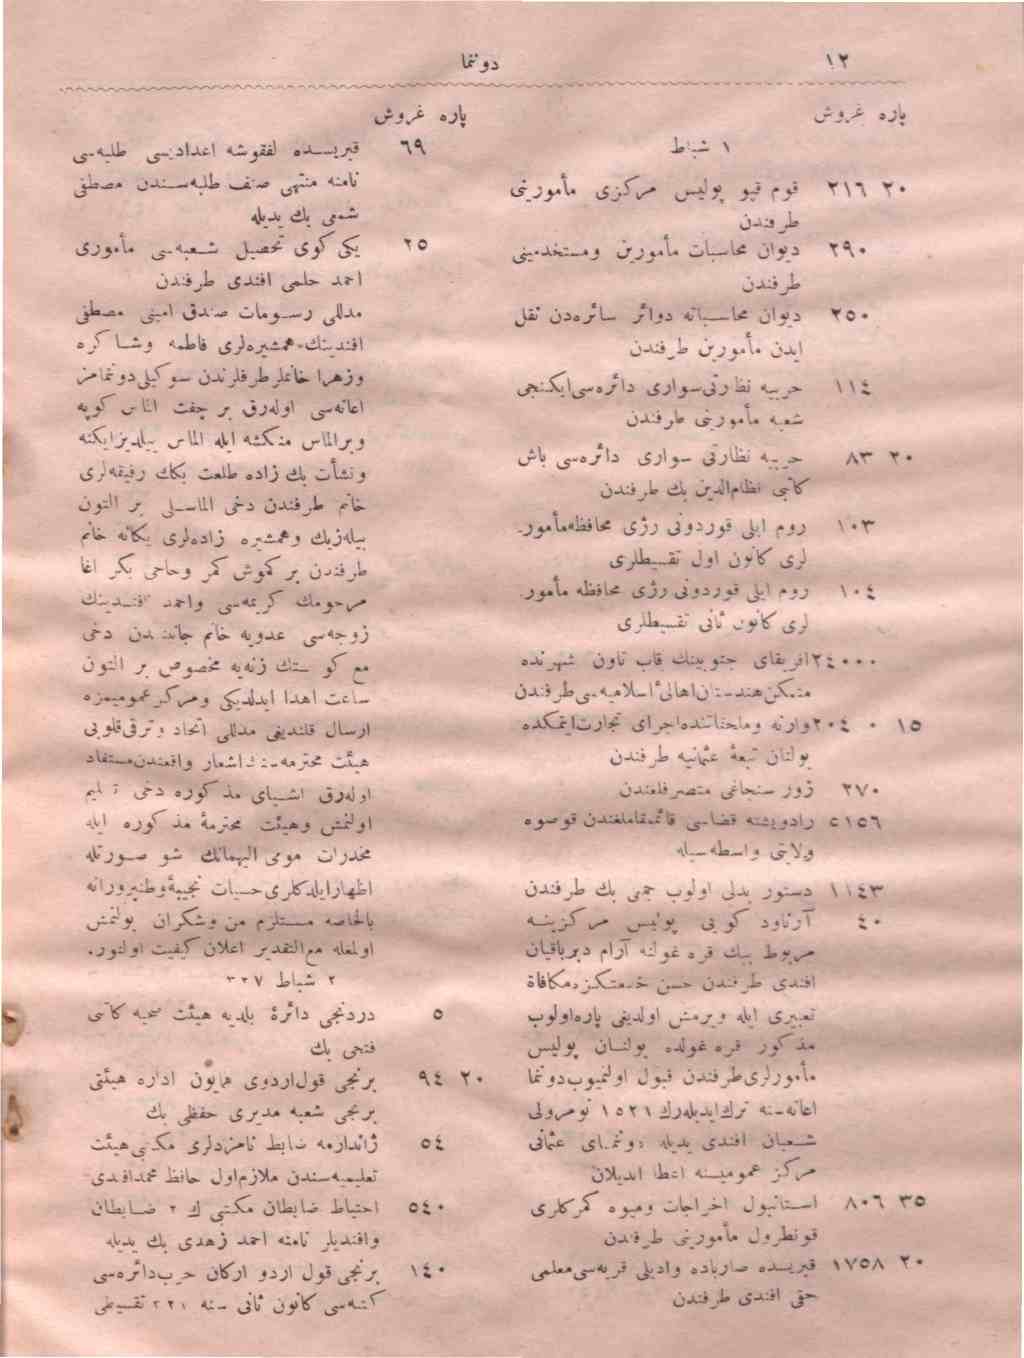 ١٢ دوننما
پاره غروش
١ شباط
٢٠ ٢١٦ قوم قپو پوليس مركزى مأمورينى
طرفندن
٢٩٠ ديوان محاسبات مأمورين ومستخدمينى
طرفندن
٢٥٠ ديوان محاسباته دوائر سائره‌دن نقل
ايدن مأمورين طرفندن
١١٤ حربيه نظارتى سوارى دائره‌سى ايكنجى
شعبه مأمورينى طرفندن
٢٠ ٨٣ حربيه نظارتى سوارى دائره‌سى باش
كاتبى نظام‌الدين بك طرفندن
١٠٣ روم ايلى قوردونى رژى محافظه مأمور-
لرى كانون اول تقسيطلرى
١٠٤ روم ايلى قوردونى رژى محافظه مأمور-
لرى كانون ثانى تقسيطلرى
٢٤٠٠٠ افريقاى جنوبينك قاپ تاون شهرنده
متمكن هندستان اهالئ اسلاميه‌سى طرفندن
١٥ ٢٠٤٠ وارنه وملحقاتنده اجراى تجارت ايتمكده
بولنان تبعهٔ عثمانيه طرفندن
٢٧٠ زور سنجاغى متصرفلغندن
٥١٥٦ رادويشته قضاسى قائمقاملغندن قوصوه
ولايتى واسطه‌سيله
١١٤٣ دستور بدلى اولوب حمى بك طرفندن
٤٠ آرناود كويى پوليس مركزينه
مربوط ببك قره غولنه آرام ديرباقيان
افندى طرفندن حسن خدمتكزه مكافاة
تعبيرى ايله ويرمش اولديغى پاره اولوب
مذكور قره غولده بولنان پوليس
مأمورلرى طرفندن قبول اولنميوب دوننما
اعانه‌سنه ترك ايديله‌رك ١٥٢١ نومرولى
شعبان افندى يديله دوننماى عثمانى
مركز عموميسنه اعطا ايديلان
٣٥ ٨٠٦ استانبول اخراجات وميوه كمركلرى
قونطرول مأمورينى طرفندن
٢٠ ١٧٥٨ قبريسده صارباده واديلى قريه‌سى معلمى
حقى افندى طرفندن
پاره غروش
٦٩ قبريسده لفقوشه اعداديسى طلبه‌سى
نامنه منتهى صنف طلبه‌سندن مصطفى
شمسى بك يديله
٢٥ يكى كوى تحصيل شعبه‌سى مأمورى
احمد حلمى افندى طرفندن
مدللى رسومات صندق امينى مصطفى
افندينك همشيره‌لرى فاطمه وشاكره
وزهرا خانملر طرفلرندن سوكيلى دوننمامز
اعانه‌سى اوله‌رق بر چفت الماس كوپه
وبر الماس منكشه ايله الماس ييلديز ايكنه
ونشأت بك زاده طلعت بكك رفيقه‌لرى
خانم طرفندن دخى الماسلى بر التون
بيله‌زيك وهمشيره زاده‌لرى يكانه خانم
طرفندن بر كموش كمر وحاجى بكر اغا
مرحومك كريمه‌سى واحمد افندينك
زوجه‌سى عدويه خانم جانبندن دخى
مع كوستك زنه‌يه مخصوص بر التون
ساعت اهدا ايدلديكى ومركز عموميمزه
ارسال قلنديغى مدللى اتحاد وترقى قلوبى
هيئت محترمه‌سنك اشعار واقعندن مستفاد
اوله‌رق اشياى مذكوره دخى تسليم
اولنمش وهيئت محترمهٔ مذكوره ايله
مخدرات مومى اليهمانك شو صورتله
اظهار ايلدكلرى حسيات نجيبهٔ وطنپرورانه
بالخاصه مستلزم من وشكران بولنمش
اولمغله مع‌التقدير اعلان كيفيت اولنور.
٢ شباط ٣٢٧
٥ دردنجى دائرهٔ بلديه هيئت صحيه كاتبى
فتحى بك
٢٠ ٩٤ برنجى قول اردوى همايون اداره هيئتى
برنجى شعبه مديرى حفظى بك
٥٤ ژاندارمه ضابط نامزدلرى مكتبى هيئت
تعليميه‌سندن ملازم اول حافظ محمد افندى
٥٤٠ احتياط ضابطان مكتبى ك ٢ ضابطان
وافنديلر نامنه احمد زهدى بك يديله
١٤٠ برنجى قول اردو اركان حرب دائره‌سى
كتبه‌سى كانون ثانى سنه تقسيطى